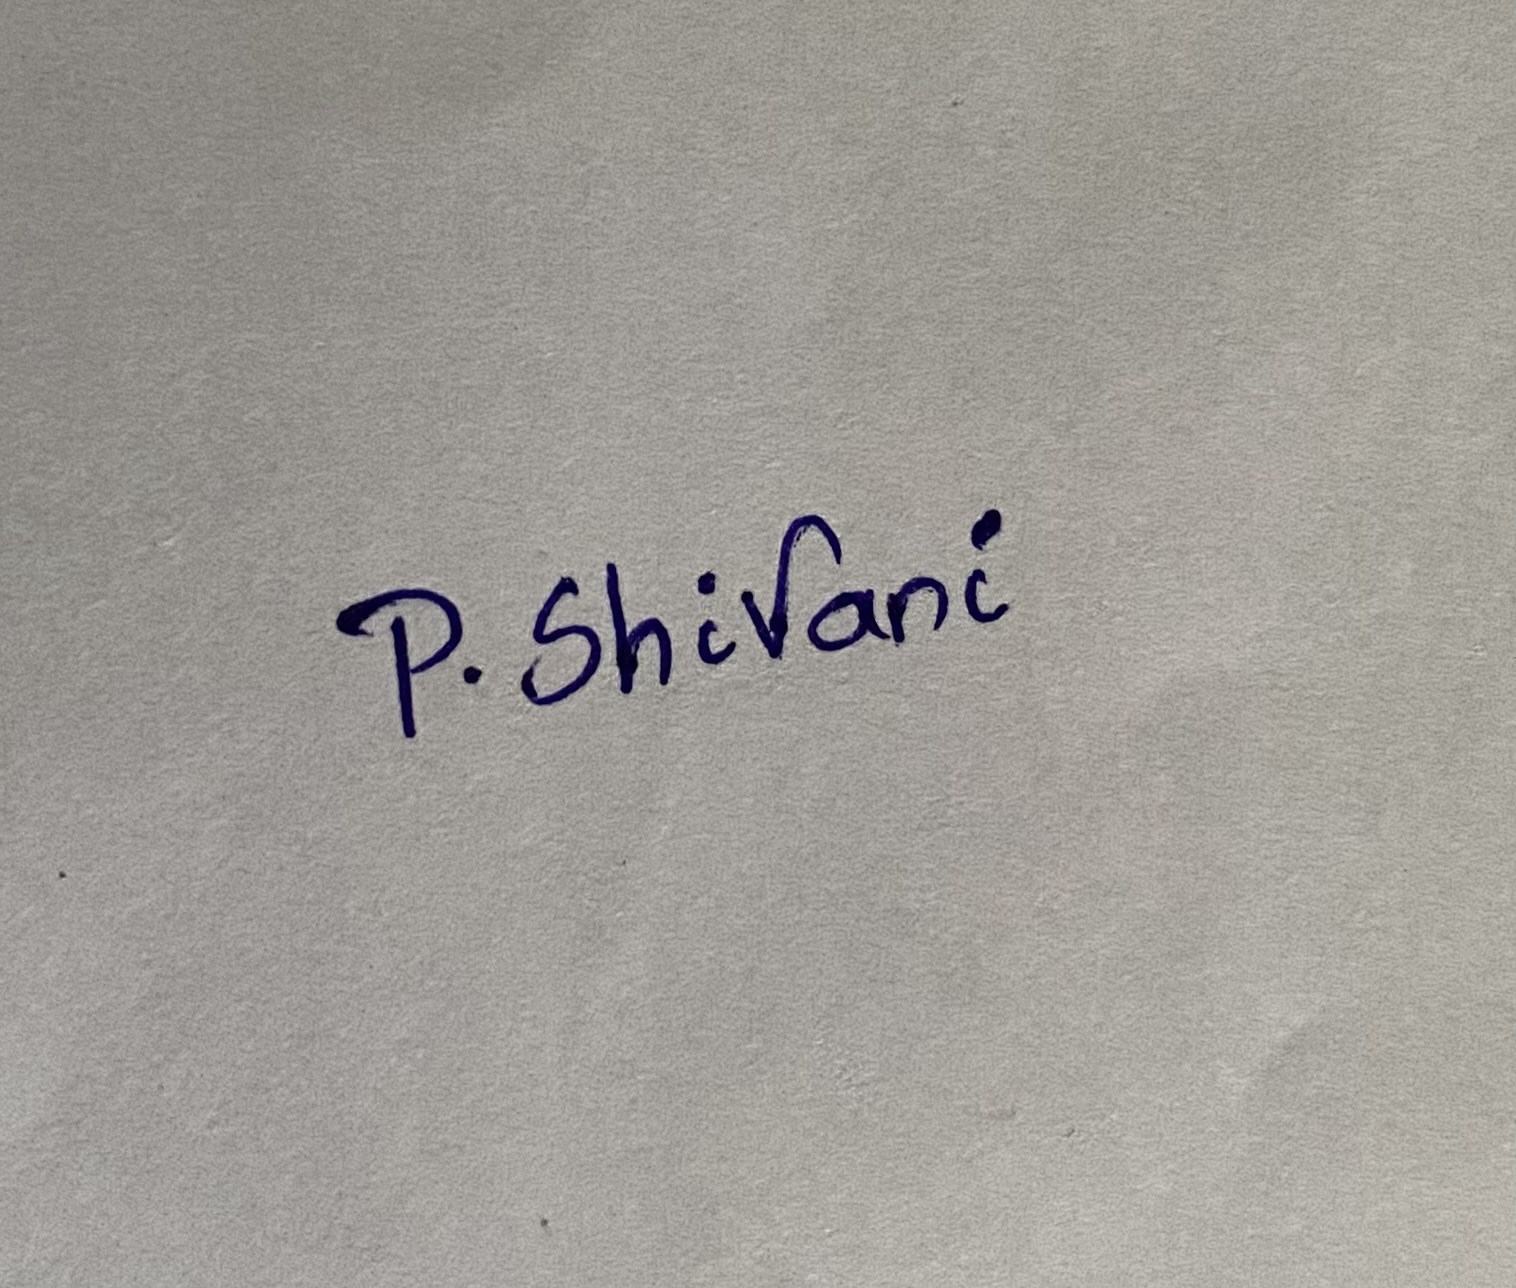 P. Shivani